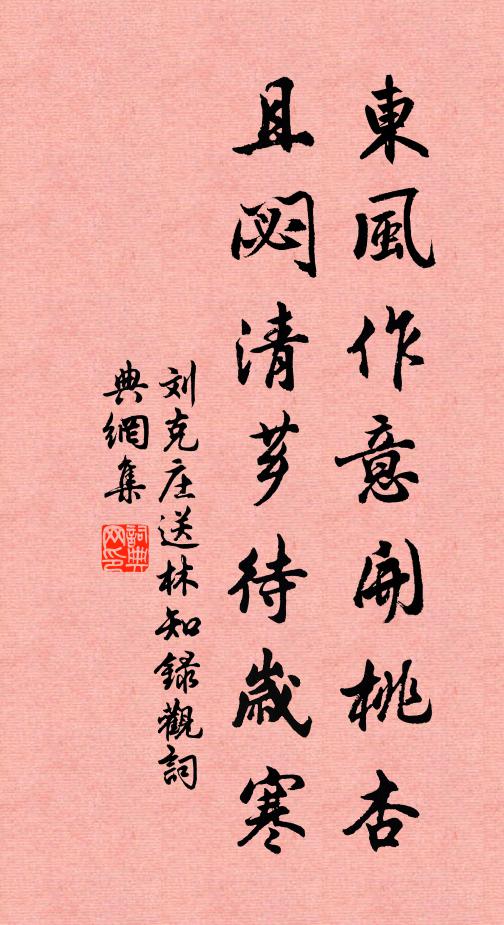 東風作意開桃杏
且閟清芽待歲寒
刘克庄送林知錄觀詞
典網集
詞典網印